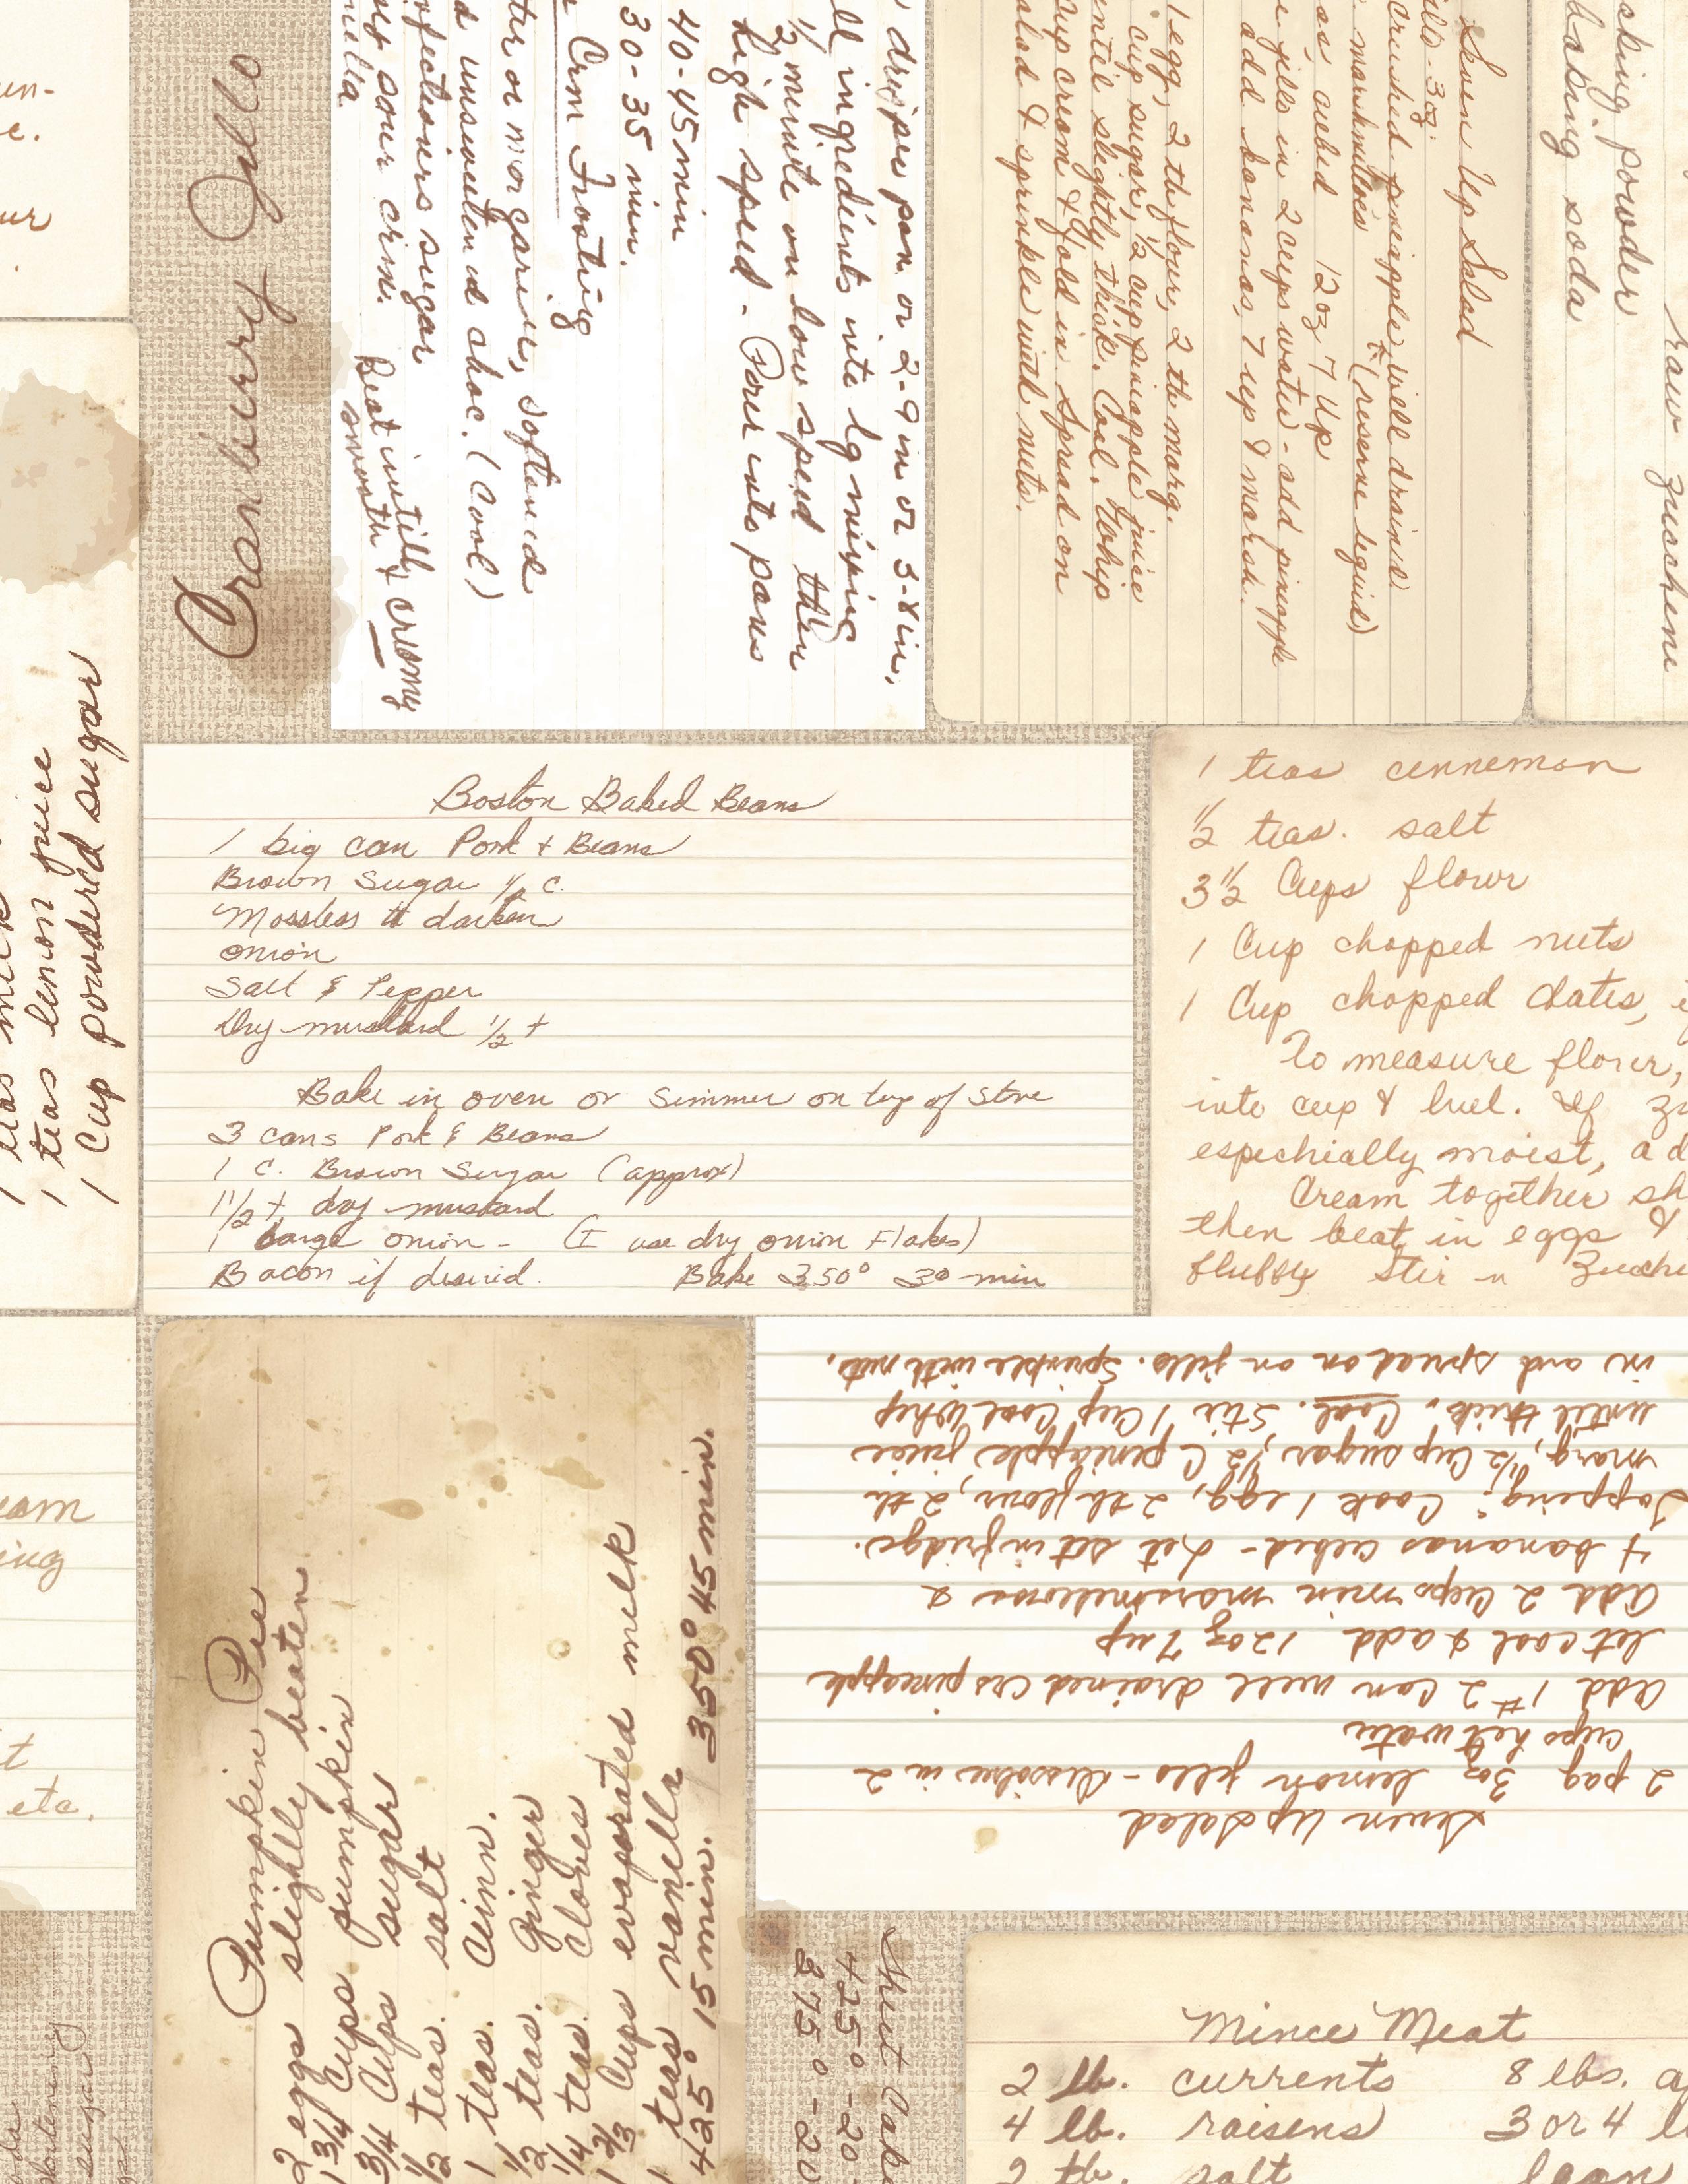 Cranberry Jello
drip pan or 2-9 in or 3-8 in.
ll ingredients into lg mixing
1/2 minute on low speed then
high speed - Pour into pans
40-45 min
30-35 min.
Crm Frosting
ter or margarine, softened
d unsweetened choc. (Cool)
nfectioners sugar
sour crm. Beat until
smooth & creamy
nilla
Seven Up Salad
ello - 3oz.
crushed pineapple well drained
marshmallows (reserve liquid)
as, cubed 12 oz 7 Up
jello in 2 cups water - add pineapple
add bananas, 7 up & marsh.
1 egg, 2 tb flour, 2 tb marg.
cup sugar, 1/2 cup pineapple juice
until slightly thick. Cool. Whip
cup cream & fold in. Spread on
alad & sprinkle with nuts.
raw zucchini
king powder
baking soda
1 teas lemon juice
1 Cup powdered sugar
Boston Baked Beans
1 big can Pork + Beans
Brown Sugar 1/2 c.
Mossless to darken
onion
Salt & Pepper
Dry mustard 1/2 t
Bake in oven or Simmer on top of Stove
3 cans Pork & Beans
1 c. Brown Sugar (approx)
1 1/2 t dry mustard
1 Large onion - (I use dry onion Flakes)
Bacon if desired. Bake 350° 30 min
1 teas cinnemon
1/2 teas. salt
3 1/2 Cups flour
1 Cup chopped nuts
1 Cup chopped dates,
To measure flour,
into cup & level. If zu
espechially moist, ad
Cream together sh
then beat in eggs &
fluffy Stir in Zucchi
Seven Up Salad
2 pag 3oz lemon jello - Dissolve in 2
cups hot water
Add 1 #2 Can well drained crs pineapple
let cool & add 12oz 7 up
Add 2 Cups min marsmellows &
4 bananas cubed - Let set in fridge.
Topping: Cook 1 egg, 2 tb flour, 2 tb
marg, 1/2 Cup sugar, 1/2 C pineapple juice
until thick. Cool. Stir 1 Cup Cool Whip
in and spread on jello. Sprinkle with nuts.
Pumpkin Pie
2 eggs slightly beaten
1 3/4 Cups pumpkin
3/4 Cups sugar
1/2 teas. salt
1 teas. Cinn.
1/2 teas. ginger
1/4 teas. Cloves
1 2/3 Cups evaporated milk
1 teas vanilla
425° 15 min. 350° 45 min.
eam
ing
t
etc.
Sheet Cake
425° - 20
375° - 20
Mince Meat
2 lb. currents 8 lbs. a
4 lb. raisens 3 or 4 l
2 tb. salt